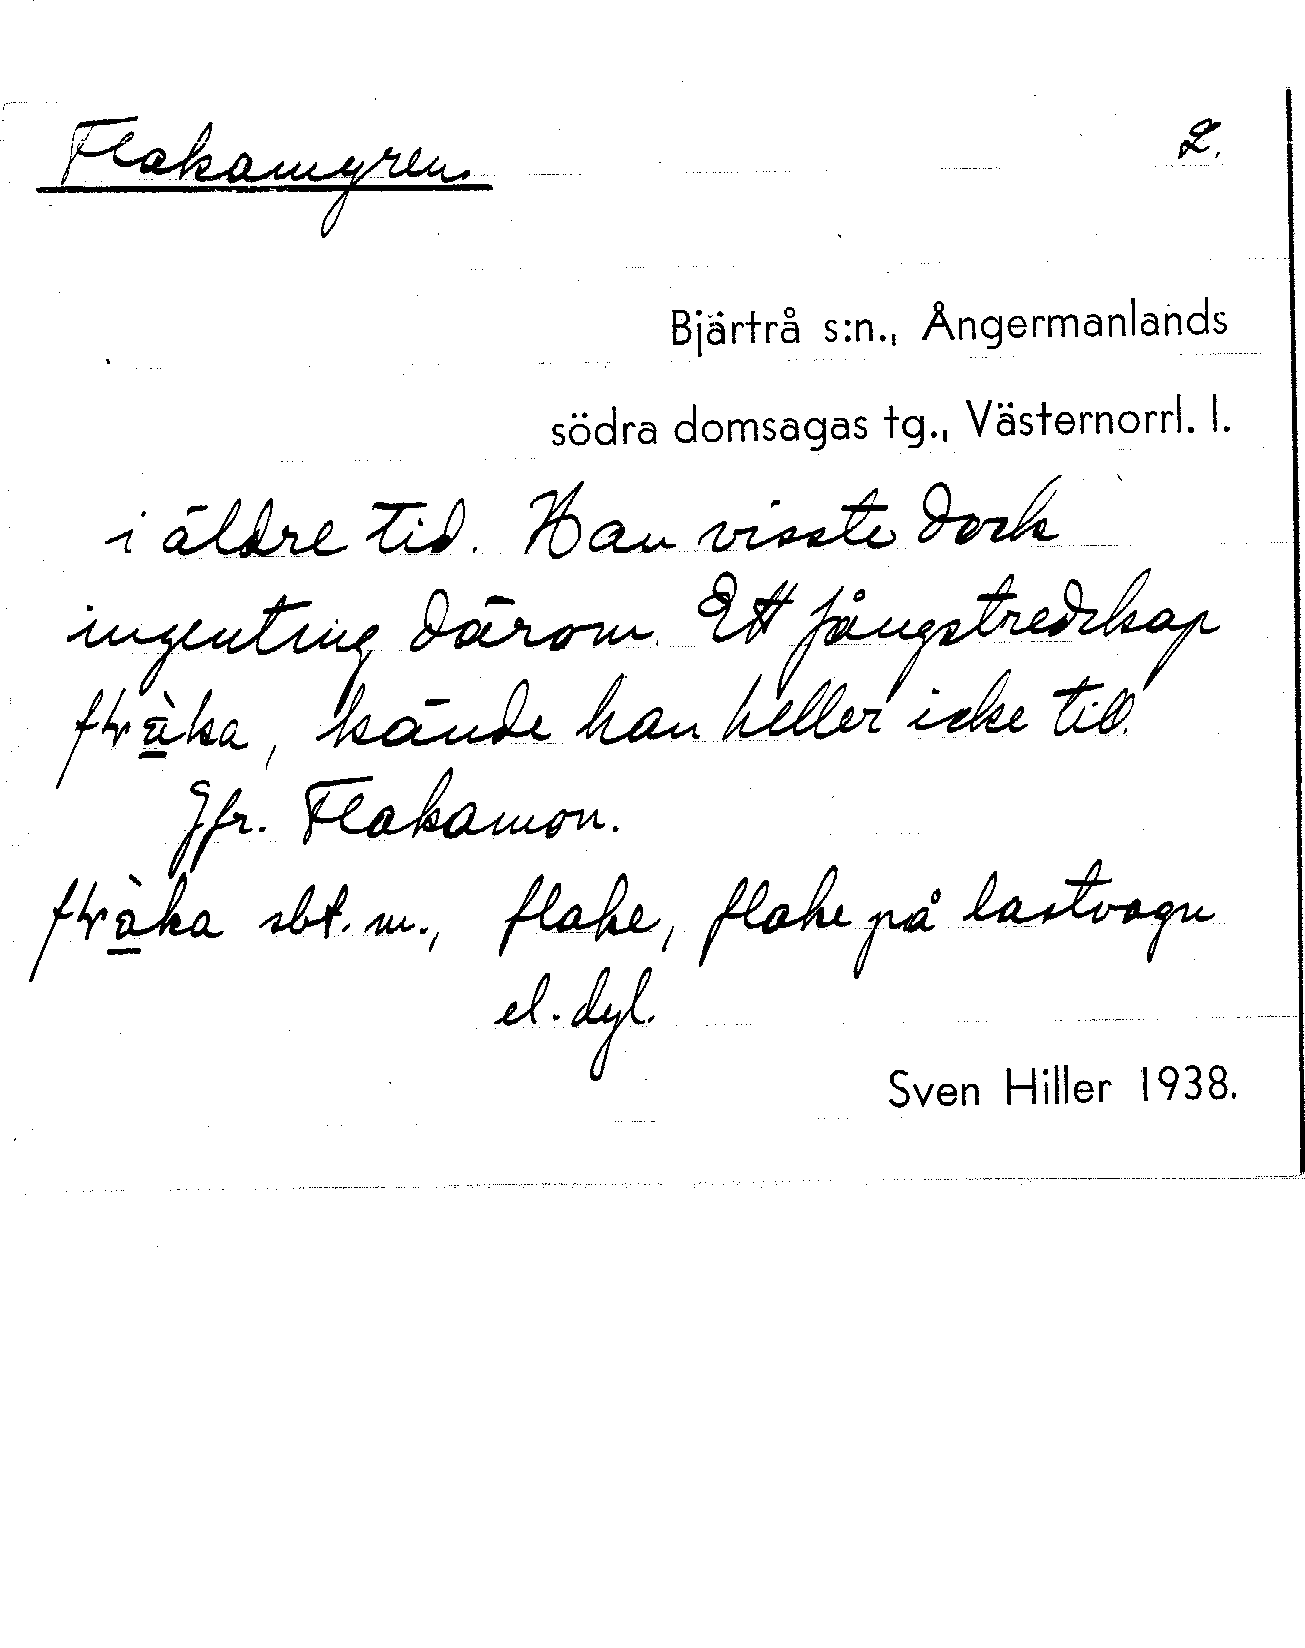 Flakamyren. 2.
Bjärtrå s:n., Ångermanlands
södra domsagas tg., Västernorrl. l.
i äldre tid. Han visste dock
ingenting därom. Ett fångstredskap
, kände han heller icke till.
Jfr. Flakamon.
sbt. m., flake, flake på lastvagn
el. dyl.
Sven Hiller 1938.